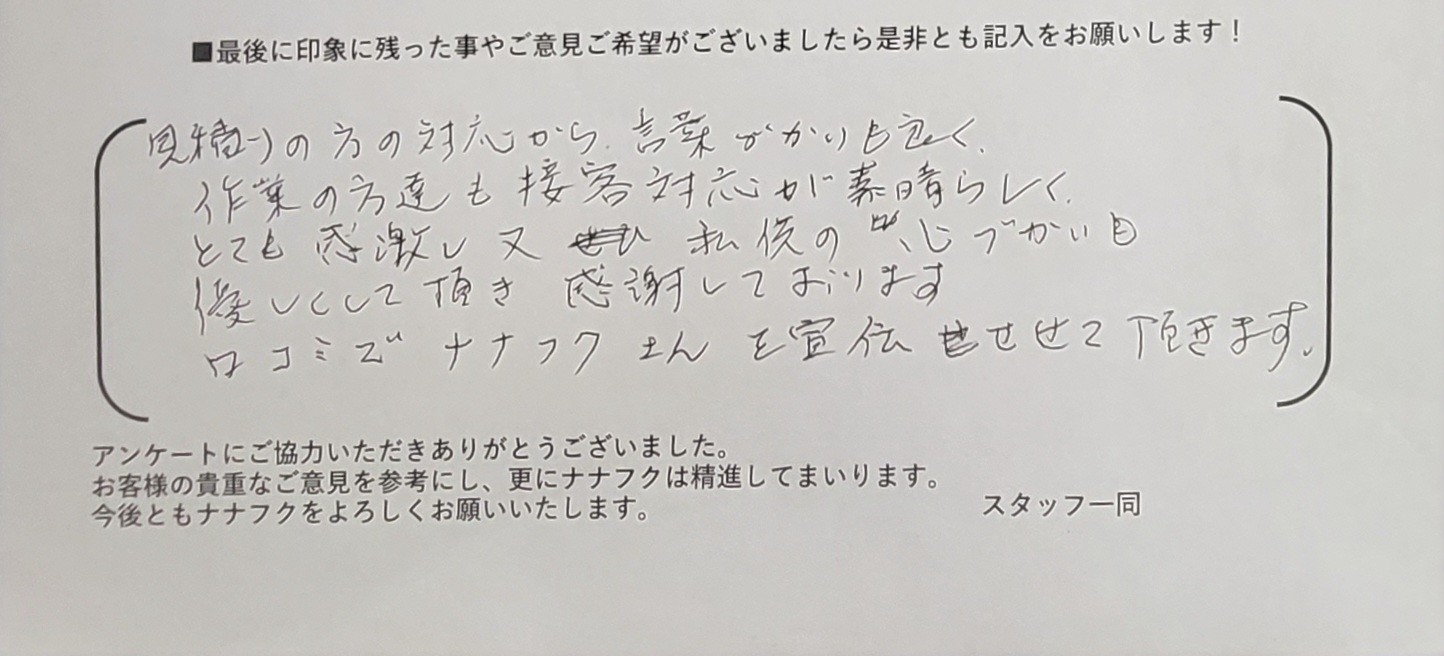 ■最後に印象に残った事やご意見ご希望がございましたら是非とも記入をお願いします！
見積りの方の対応から、言葉がかりも良く、
作業の方達も接客対応が素晴らしく、
とても感激し又 私供の 心づかいも
優しくして頂き 感謝しております
口コミで ナナフク さん を宣伝 させて頂きます。
アンケートにご協力いただきありがとうございました。
お客様の貴重なご意見を参考にし、更にナナフクは精進してまいります。
今後ともナナフクをよろしくお願いいたします。
スタッフ一同